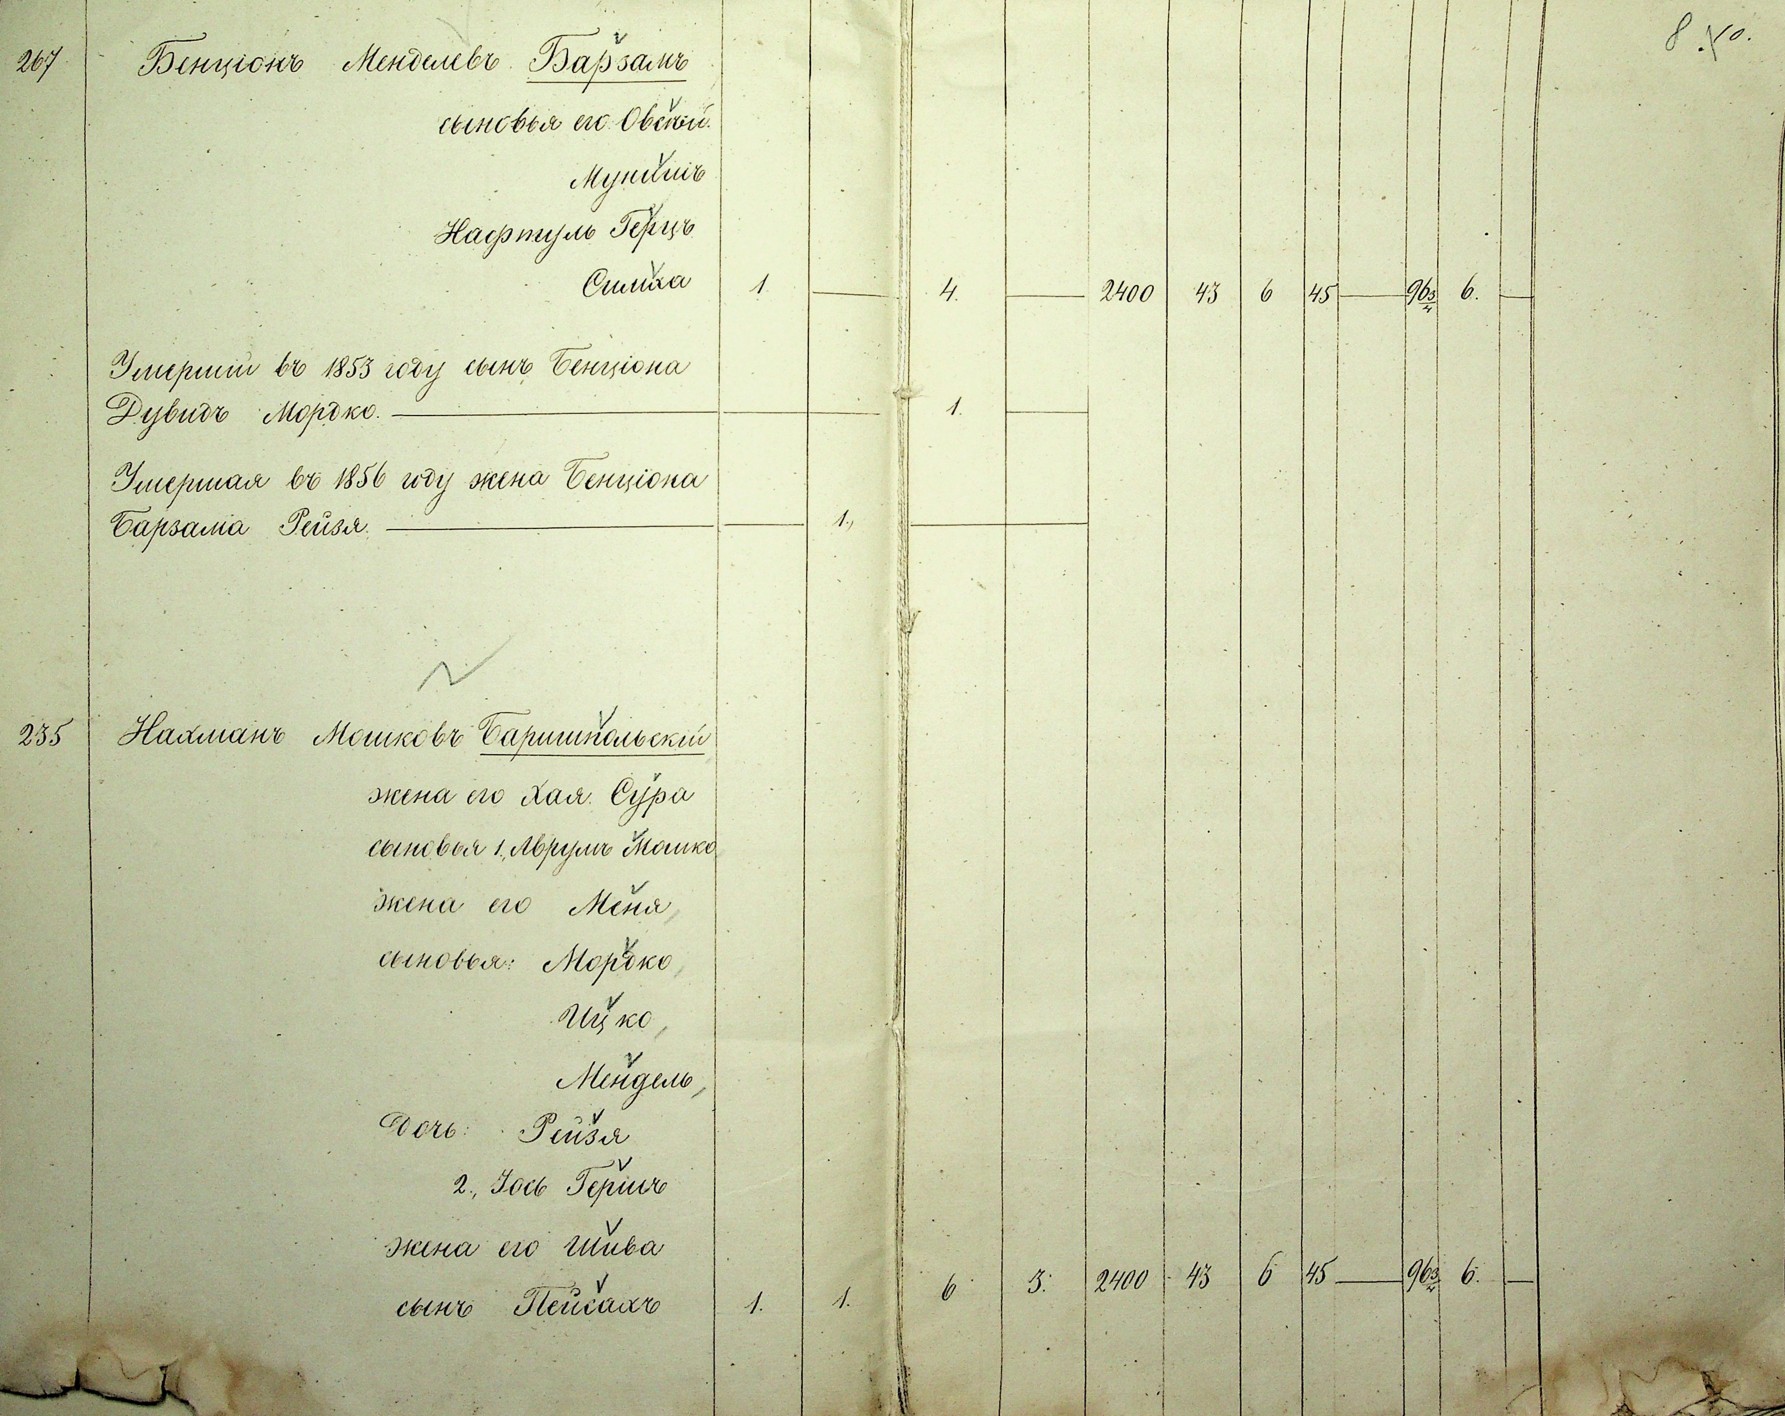 8
267 Бенціонъ Менделевъ Барзамъ
сыновья его Овсѣй.
Мунишъ
Нафтуль Герцъ
Симха 1 — 4. — 2400 43 6 45 — 96 3/4 6. —
Умершій въ 1853 году сынъ Бенціона
Дувидъ Мордко. — 1. —
Умершая въ 1856 году жена Бенціона
Барзама Рейзя. — 1., —
235 Нахманъ Мошковъ Баришпольскій
жена его Хая Сура
сыновья 1., Аврумъ Мошко
жена его Меня,
сыновья: Мордко,
Ицко,
Мендель,
Дочь: Рейзя
2., Іось Гершъ
жена его Шива
сынъ Пейсахъ 1. 1. 6 3. 2400 43 6 45 — 96 3/4 6. —